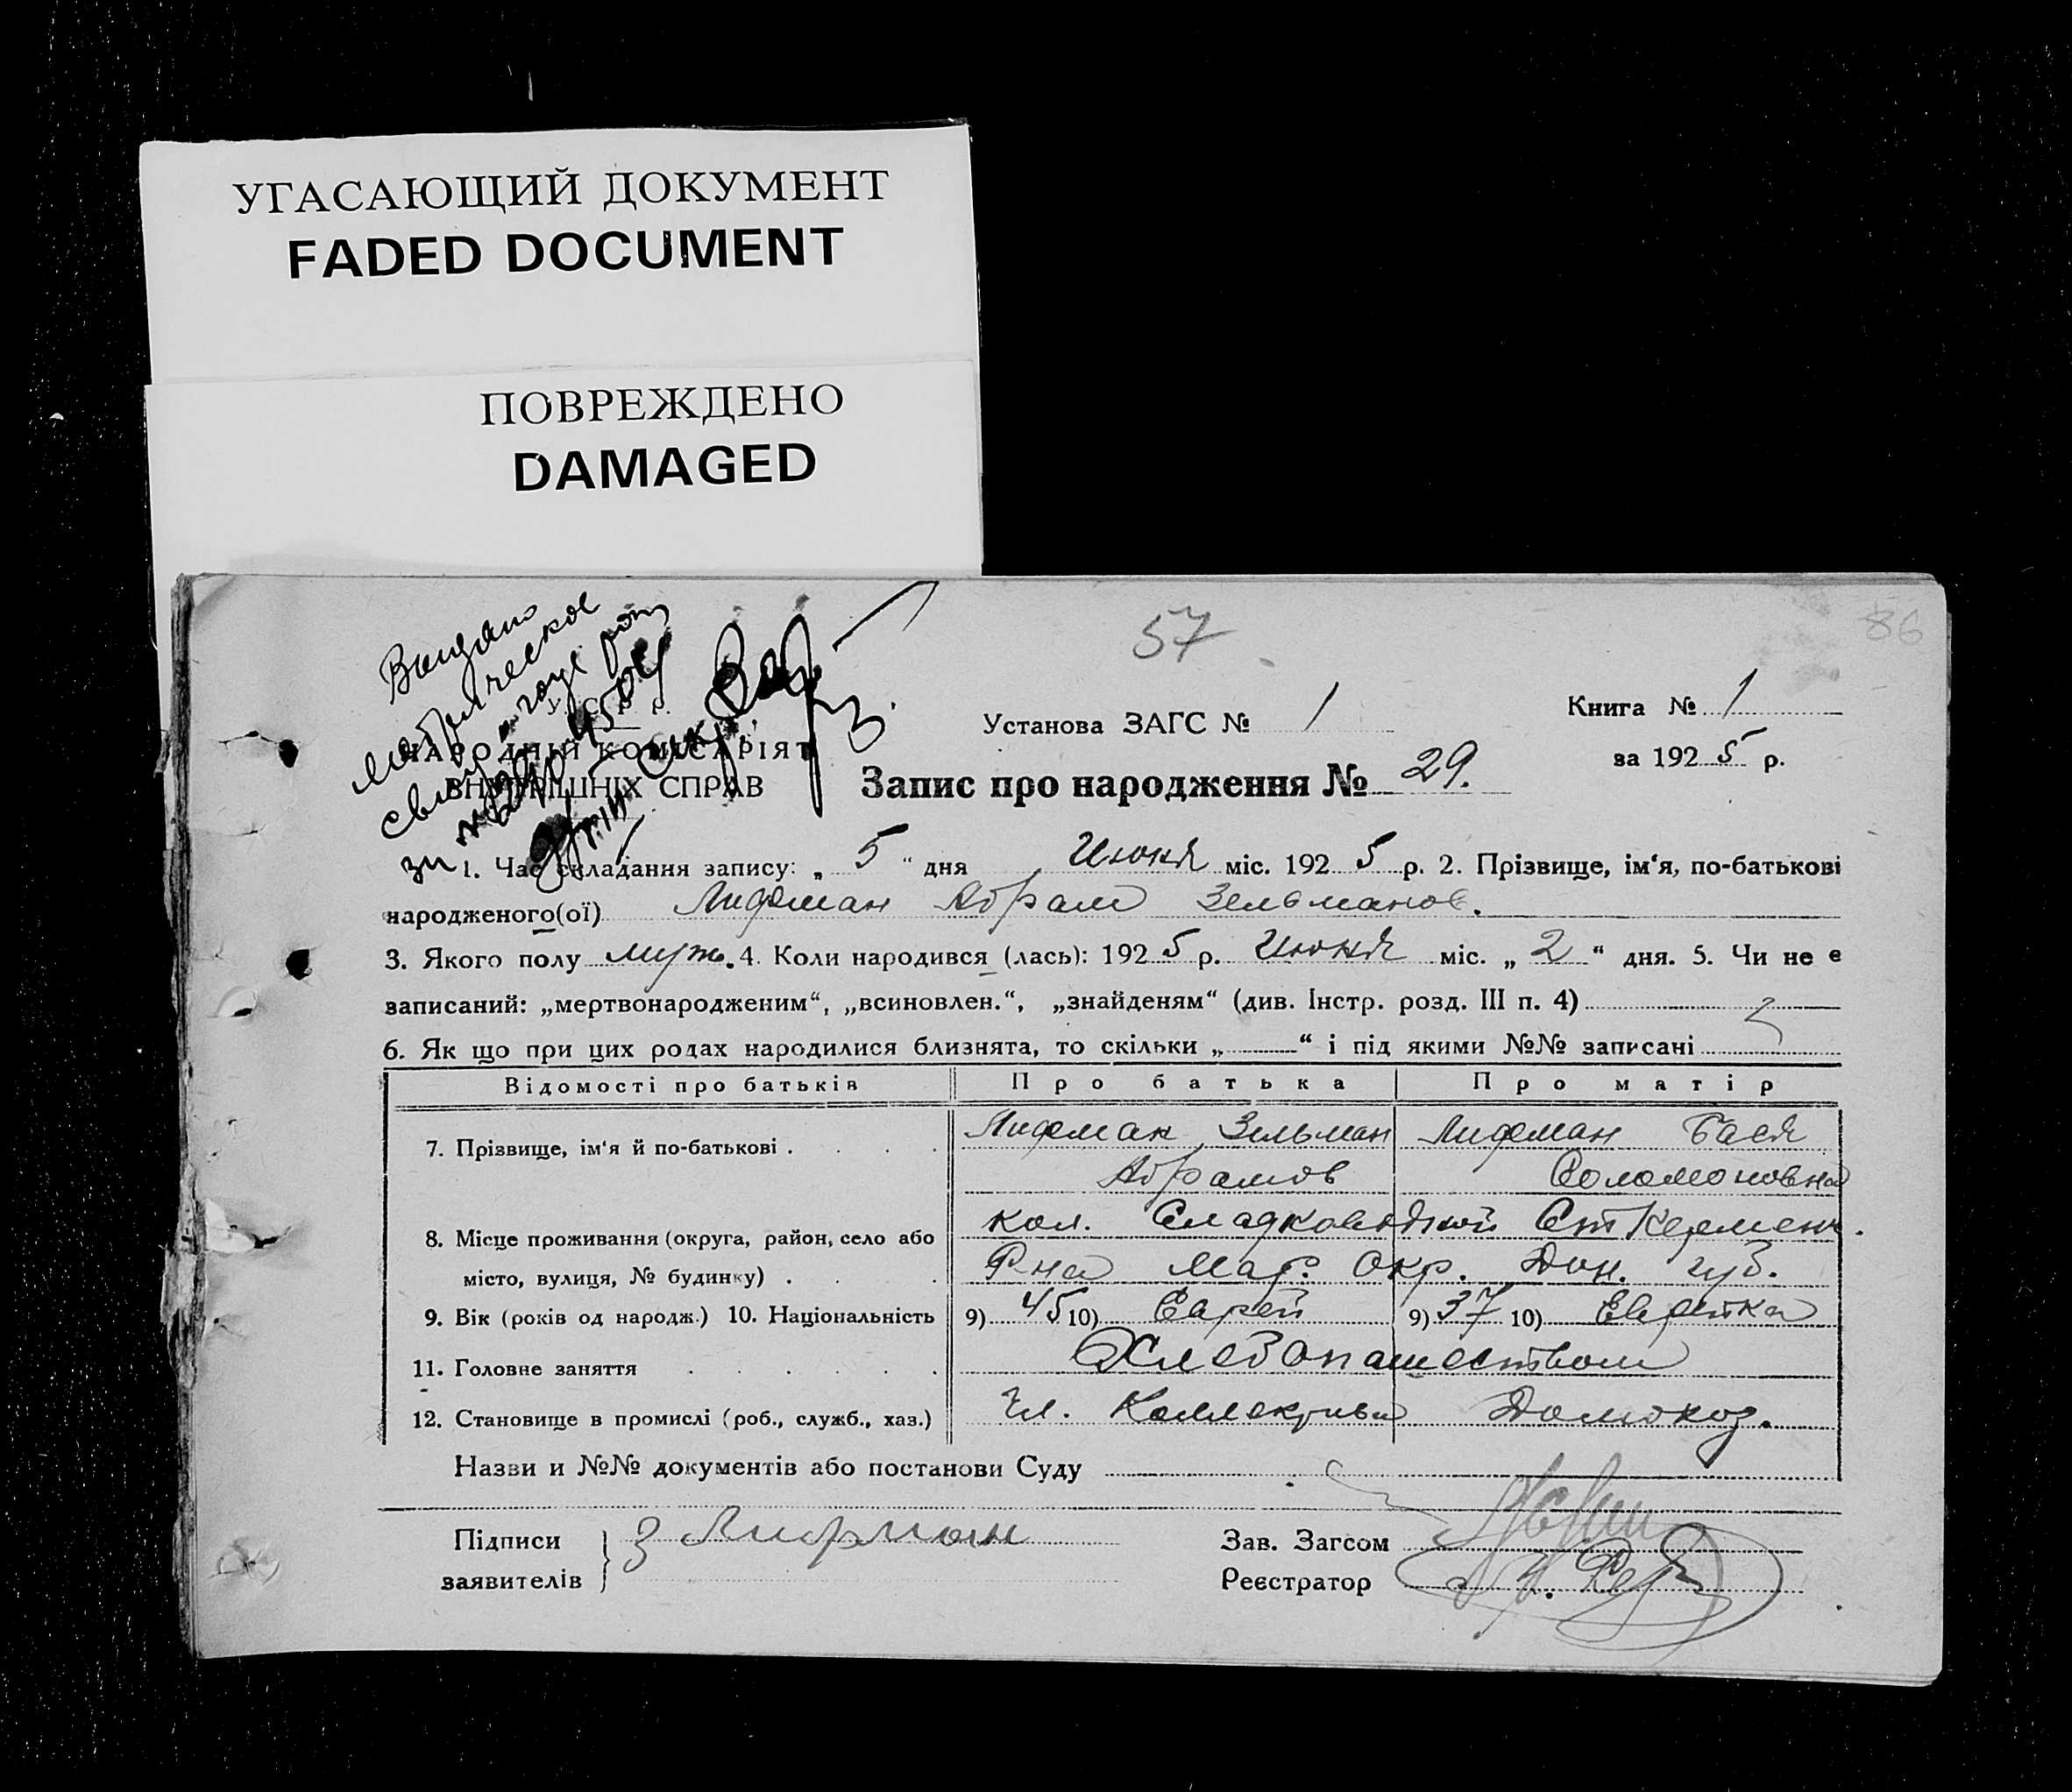 УГАСАЮЩИЙ ДОКУМЕНТ
FADED DOCUMENT
ПОВРЕЖДЕНО
DAMAGED
57
86
Выдано
метрическое
свид.
за №
У. С. Р. Р.
НАРОДНІЙ КОМІСАРІЯТ
ВНУТРІШНІХ СПРАВ
Установа ЗАГС № 1
Книга № 1
за 1925 р.
Запис про народження № 29.
1. Час складання запису: „ 5 “ дня Июня міс. 1925 р. 2. Прізвище, ім‘я, по-батькові
народженого(ої) Лифман Абрам Зельманов.
3. Якого полу муж. 4. Коли народився (лась): 1925 р. Июня міс. „ 2 “ дня. 5. Чи не є
записаний: „мертвонародженим“, „всиновлен.“, „знайденям“ (див. Інстр. розд. III п. 4)
6. Як що при цих родах народилися близнята, то скільки „ “ і під якими №№ записані
Відомості про батьків Про батька Про матір
7. Прізвище, ім‘я й по-батькові . Лифман Зельман Лифман Бася
Абрамов Соломоновна
8. Місце проживання (округа, район, село або кол. Сладководной Ст Керменч.
місто, вулиця, № будинку) . Р-на Мар. Окр. Дон. губ.
9. Вік (років од народж.) 10. Національність 9) 45 10) Еврей 9) 37 10) Еврейка
11. Головне заняття Хлебопашеством
12. Становище в промислі (роб., служб., хаз.) Чл. Коллектива Домохоз.
Назви и №№ документів або постанови Суду
Підписи З Лифман Зав. Загсом
заявителів Реєстратор